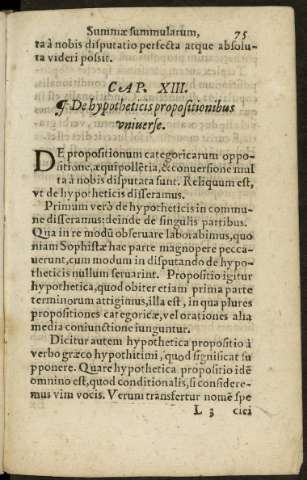 Summæ summularum,
75
ta à nobis disputatio perfecta atque absolu-
ta videri possit.
CAP. XIII.
¶ De hypotheticis propositionibus
vniuerse.
DE propositionum categoricarum oppo-
sitione, æquipollētia, & conuersione mul
ta à nobis disputata sunt. Reliquum est,
vt de hypotheticis disseramus.
Primum verò de hypotheticis in commu-
ne disseramus: deinde de singulis partibus.
Qua in re modū obseruare laborabimus, quo
niam Sophistæ hac parte magnopere pecca-
uerunt, cum modum in disputando de hypo-
theticis nullum seruarint. Propositio igitur
hypothetica, quod obiter etiam prima parte
terminorum attigimus, illa est, in qua plures
propositiones categoricæ, vel orationes alia
media coniunctione iunguntur.
Dicitur autem hypothetica propositio à
verbo græco hypothitimi, quod significat su
pponere. Quare hypothetica propositio idē
omnino est, quod conditionalis, si considere-
mus vim vocis. Verum transfertur nomē spe
L 3 ciei